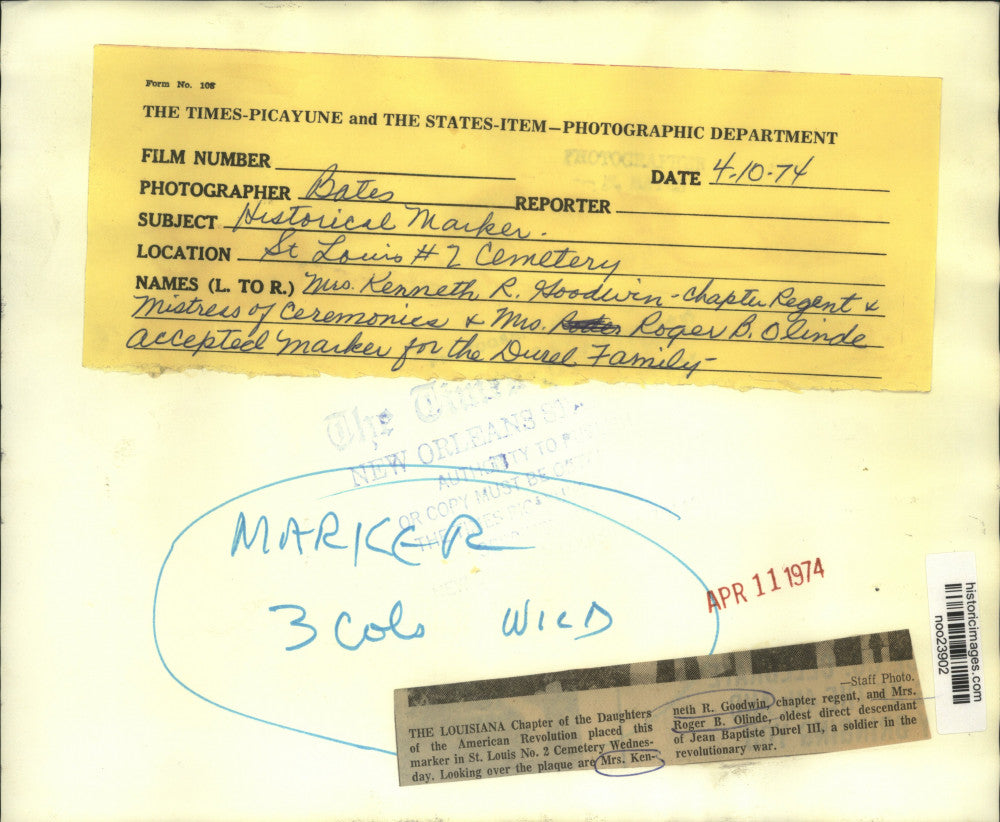 Form No. 108
THE TIMES-PICAYUNE and THE STATES-ITEM—PHOTOGRAPHIC DEPARTMENT
FILM NUMBER
DATE 4-10-74
PHOTOGRAPHER Bates
REPORTER
SUBJECT Historical Marker.
LOCATION St Louis #2 Cemetery
NAMES (L. TO R.) Mrs. Kenneth R. Goodwin - chapter Regent &
Mistress of Ceremonies & Mrs. Roger B. Olinde
accepted marker for the Durel Family -
The Times
NEW ORLEANS
AUTHORITY TO
OR COPY MUST BE
MARKER
3 Cols WILD
APR 11 1974
historicimages.com
noo23902
—Staff Photo.
THE LOUISIANA Chapter of the Daughters
of the American Revolution placed this
marker in St. Louis No. 2 Cemetery Wednes-
day. Looking over the plaque are Mrs. Ken-
neth R. Goodwin, chapter regent, and Mrs.
Roger B. Olinde, oldest direct descendant
of Jean Baptiste Durel III, a soldier in the
revolutionary war.